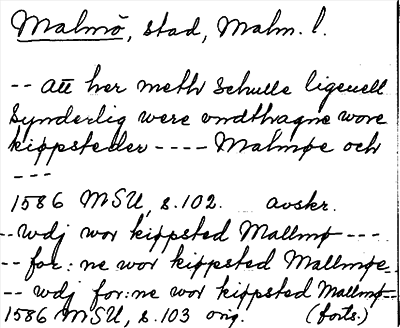 Malmö, stad, Malm. l.
-- att her meth schulle ligeuell
synderlig were vndthagne wore
kippsteder ---- Malmøe och
---
1586 MSU, s. 102. avskr.
-- wdj wor kippsted Mallmø ---
-- for: ne wor kippsted Mallmøe --
-- wdj for: ne wor kippsted Mallmø --
1586 MSU, s. 103 orig. (forts.)